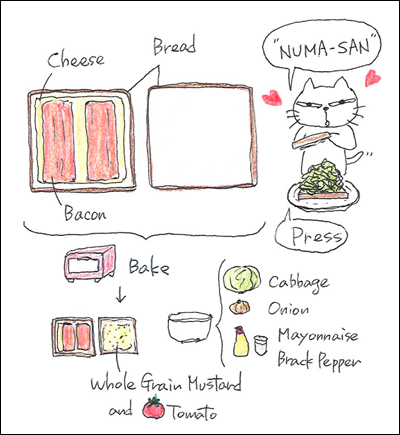 "NUMA-SAN"
Cheese
Bread
Bacon
Press
Bake
Cabbage
Onion
Mayonnaise
Brack Pepper
Whole Grain Mustard
and Tomato